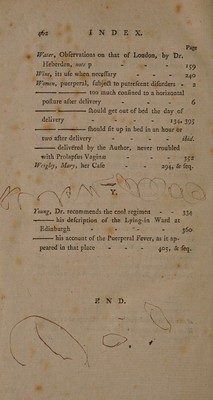 462 I N D E X.
Page
Water, Observations on that of London, by Dr.
Heberden, note p - - - - 159
Wine, its use when necessary - - - 240
Women, puerperal, subject to putrescent disorders - 2
——— ——— too much confined to a horizontal
posture after delivery - - - - 6
——— ——— should get out of bed the day of
delivery - - - - 134, 395
——— ——— should sit up in bed in an hour or
two after delivery - - - - ibid.
——— delivered by the Author, never troubled
with Prolapsus Vaginæ - - - 352
Wrigley, Mary, her Case - - - 294, & seq.
Y.
Young, Dr. recommends the cool regimen - - 334
——— his description of the Lying-in Ward at
Edinburgh - - - - 360
——— his account of the Puerperal Fever, as it ap-
peared in that place - - - 405, & seq.
E N D.